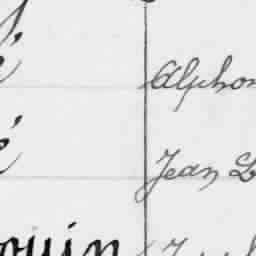 é Alphon
é Jean B
ouin